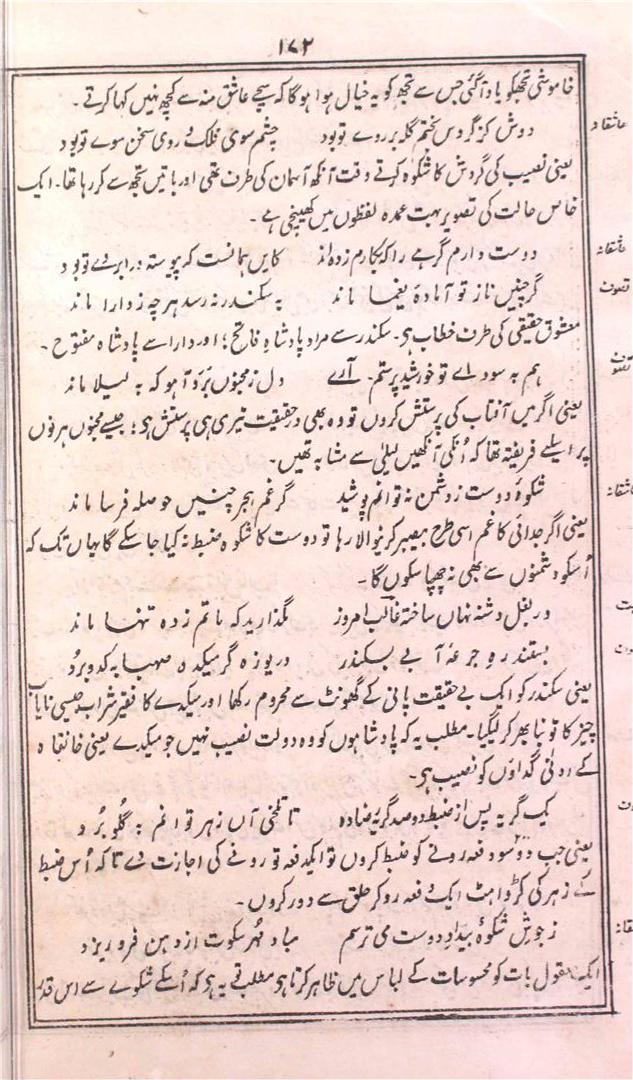 ۱۷۲
خاموشی تجھکو یاد آگئی جس سے تجھ کو یہ خیال ہوا ہوگا کہ سچے عاشق منہ سے کچھ نہیں کہا کرتے ۔
عاشقانہ
دوش کز گردش بختم گلہ بر روے تو بود چشم سوی فلک و روی سخن سوے تو بود
یعنی نصیب کی گردش کا شکوہ کرتے وقت آنکھ آسمان کی طرف تھی اور باتیں تجھ سے کر رہا تھا ۔ ایک
خاص حالت کی تصویر بہت عمدہ لفظوں میں کھینچی ہے ۔
عاشقانہ
دوست دارم گرہے را کہ بکارم زدہ اند کایں ہمانست کہ پیوستہ در ابروے تو بود
تصوف
گر چنیں ناز تو آمادۂ یغما ماند بہ سکندر نہ رسد ہرچہ ز دارا ماند
معشوق حقیقی کی طرف خطاب ہی ۔ سکندر سے مراد پادشاہ فاتح ؛ اور دارا سے پادشاہ مفتوح ۔
تصوف
ہم بہ سوداے تو خورشید پرستم آرے دل ز مجنوں برد آہو کہ بہ لیلا ماند
یعنی اگر میں آفتاب کی پرستش کروں تو وہ بھی درحقیقت تیری ہی پرستش ہی ؛ جیسے مجنوں ہرنوں
پر اسلیے فریفتہ تھا کہ اُنکی آنکھیں لیلیٰ سے مشابہ تھیں ۔
عاشقانہ
شکوۂ دوست ز دشمن نہ توانم پوشید گر غم ہجر چنیں حوصلہ فرسا ماند
یعنی اگر جدائی کا غم اسی طرح بیصبر کرنوالا رہا تو دوست کا شکوہ ضبط نہ کیا جا سکے گا یہاں تک کہ
اُسکو دشمنوں سے بھی نہ چھپا سکوں گا ۔
در بغل دشنہ نہاں ساختہ غالب امروز مگذارید کہ ماتم زدہ تنہا ماند
بستند رہِ جرعۂ آبے بسکندر دریوزہ گر میکدہ صہبا بہ کدو برد
یعنی سکندر کو ایک بے حقیقت پانی کے گھونٹ سے محروم رکھا اور میکدے کا فقیر شراب جیسی نایاب
چیز کا تونبا بھر کر لیگیا ۔ مطلب یہ کہ پادشاہوں کو وہ دولت نصیب نہیں جو میکدے یعنی خانقاہ
کے ادنیٰ گداؤں کو نصیب ہی ۔
یک گریہ پس از ضبط دو صد گریہ رضا دہ تا تلخی آں زہر توانم ز گلو برد
یعنی جب دو سو دفعہ رونے کو ضبط کروں تو ایکدفعہ تو رونے کی اجازت دے تاکہ اُس ضبط
کے زہر کی کڑواہٹ ایک دفعہ رو کر حلق سے دور کروں ۔
ز جوش شکوۂ بیداد دوست می ترسم مباد مہر سکوت از دہن فرو ریزد
ایک معقول بات کو محسوسات کے لباس میں ظاہر کرتا ہی مطلب تو یہ ہی کہ اُسکے شکوے سے اس قدر